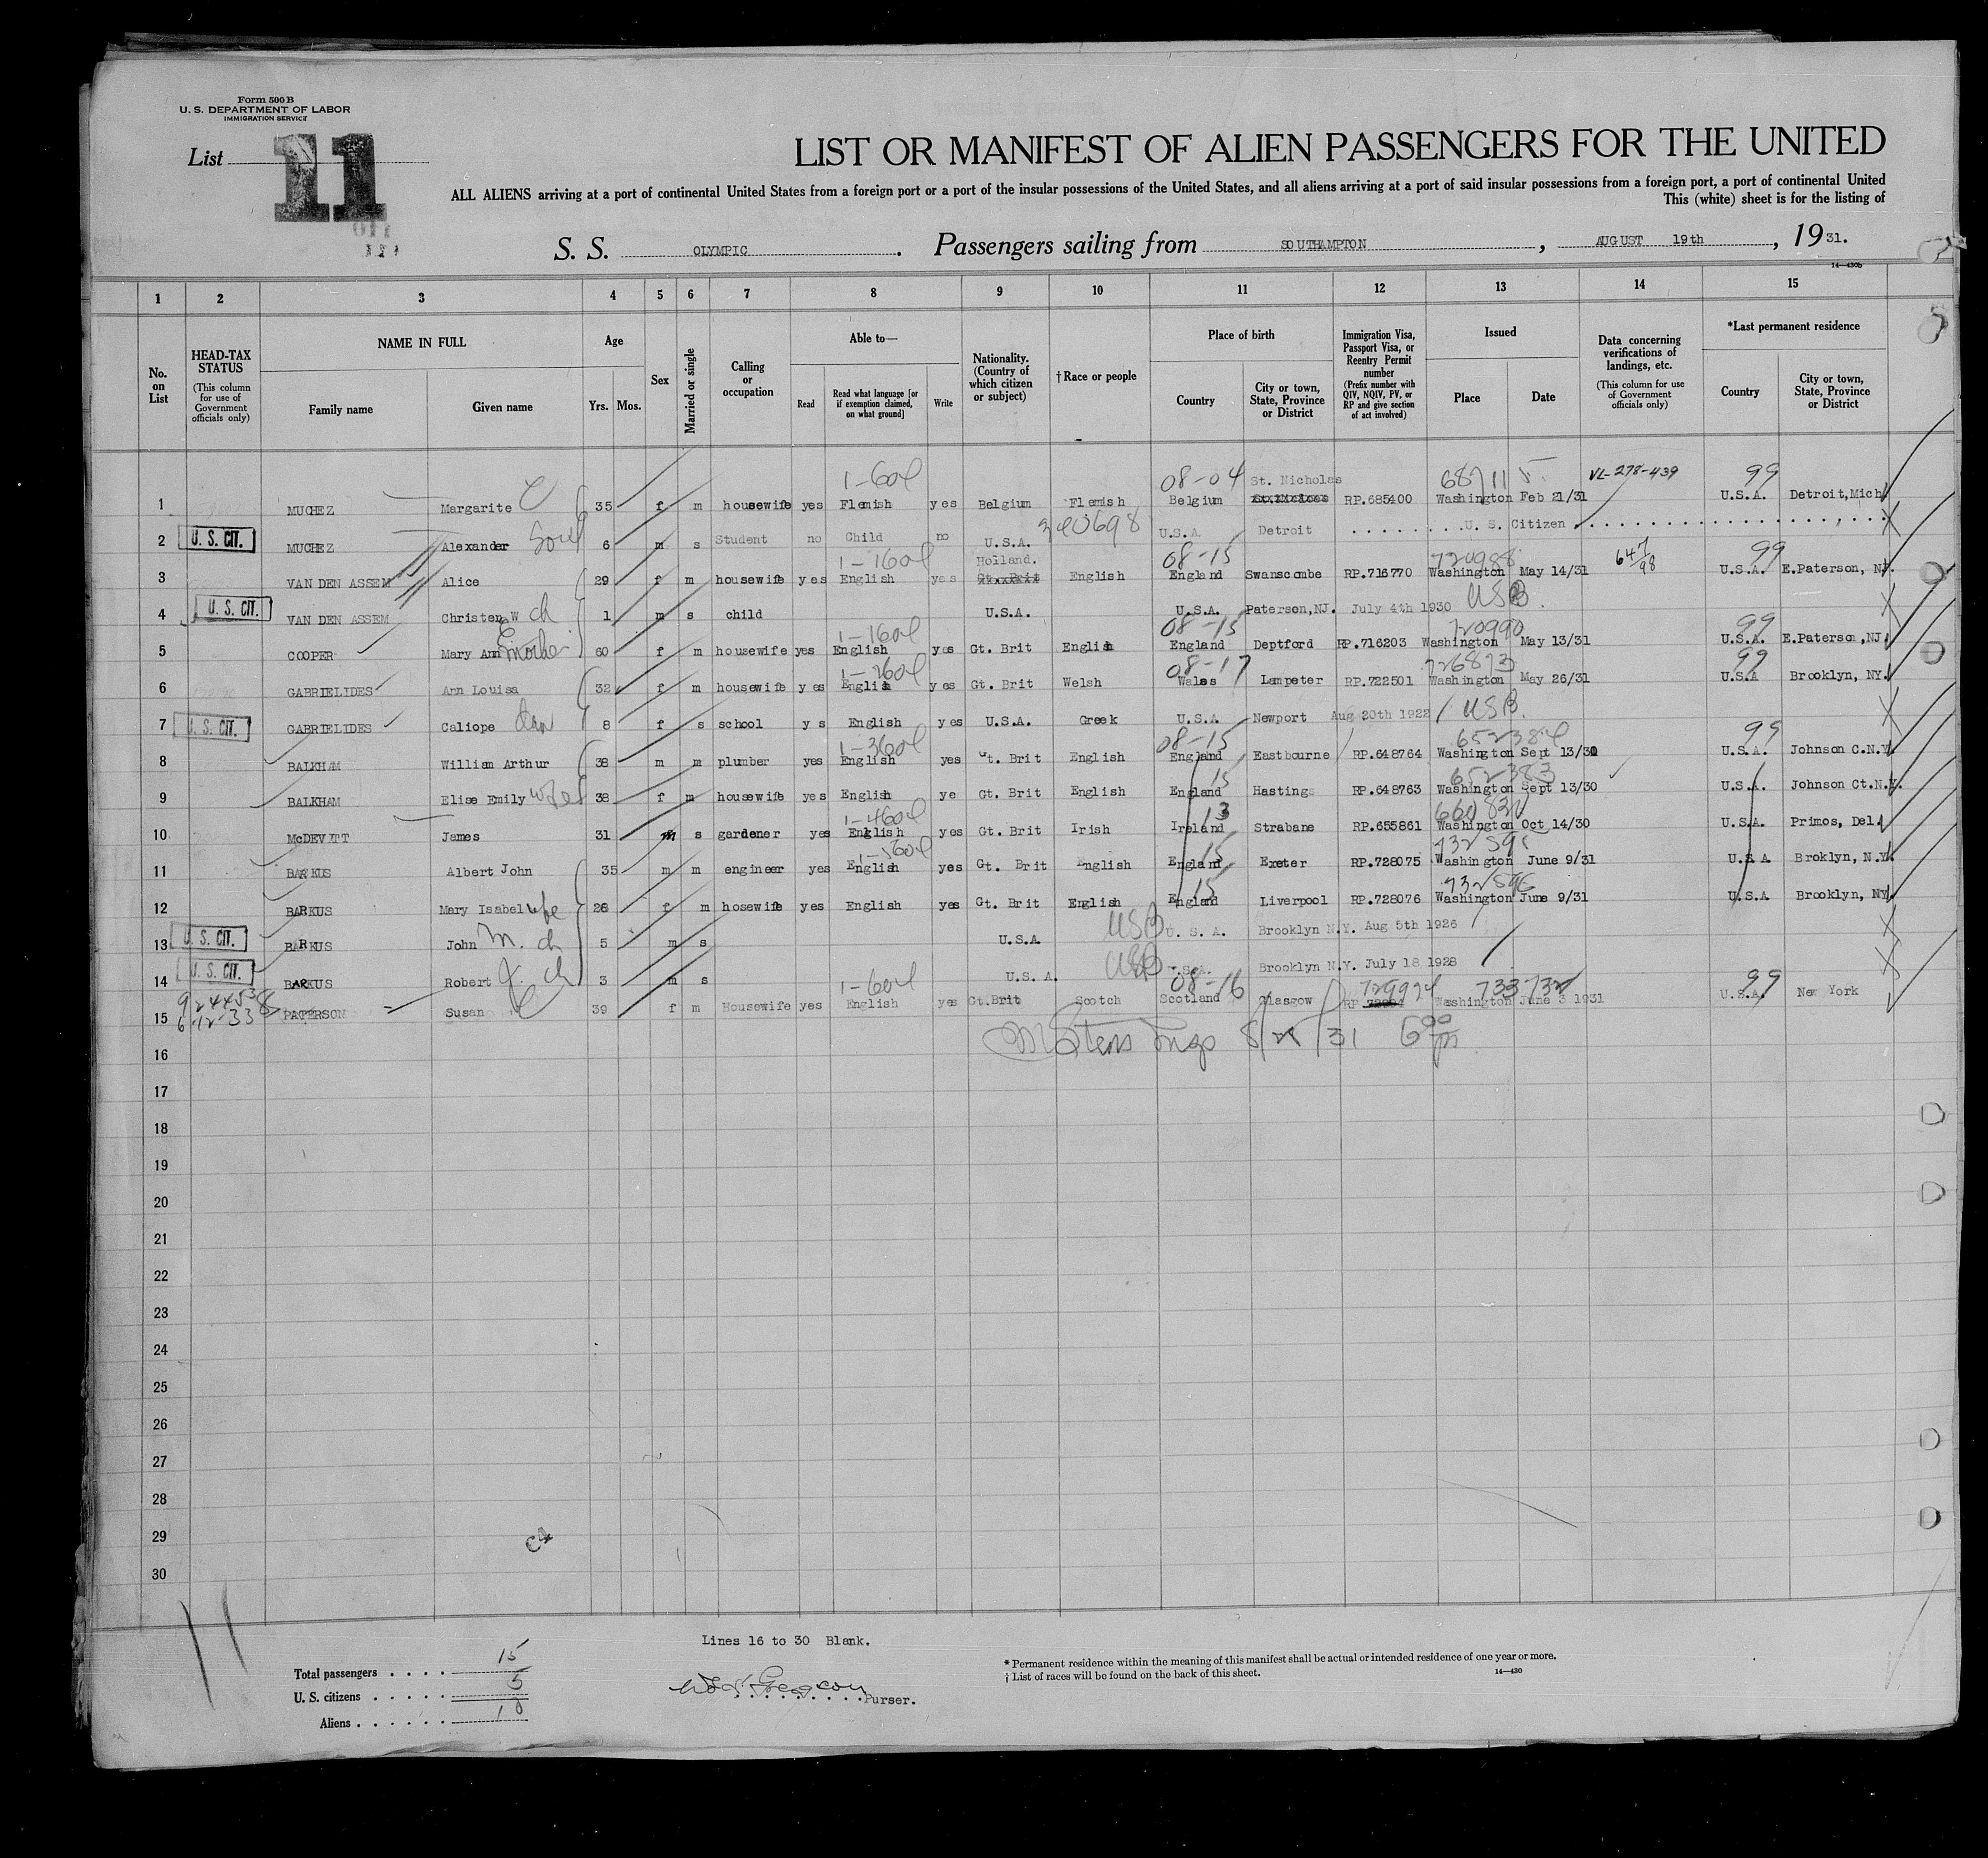 Form 500 B
U. S. DEPARTMENT OF LABOR
IMMIGRATION SERVICE
List 11
LIST OR MANIFEST OF ALIEN PASSENGERS FOR THE UNITED
ALL ALIENS arriving at a port of continental United States from a foreign port or a port of the insular possessions of the United States, and all aliens arriving at a port of said insular possessions from a foreign port, a port of continental United
This (white) sheet is for the listing of
011
S. S. OLYMPIC. Passengers sailing from SOUTHAMPTON, AUGUST 19th, 1931.
14—430b
1 2 3 4 5 6 7 8 9 10 11 12 13 14 15
No. on List
HEAD-TAX STATUS (This column for use of Government officials only)
NAME IN FULL
Family name Given name
Age
Yrs. Mos.
Sex
Married or single
Calling or occupation
Able to—
Read Read what language [or if exemption claimed, on what ground] Write
Nationality. (Country of which citizen or subject)
† Race or people
Place of birth
Country City or town, State, Province or District
Immigration Visa, Passport Visa, or Reentry Permit number (Prefix number with QIV, NQIV, PV, or RP and give section of act involved)
Issued
Place Date
Data concerning verifications of landings, etc. (This column for use of Government officials only)
*Last permanent residence
Country City or town, State, Province or District
1-604 08-04 St. Nicholas 68711 VL-278-439 99
1 MUCHEZ Margarite 35 f m housewife yes Flemish yes Belgium Flemish Belgium RP.685400 Washington Feb 21/31 U.S.A. Detroit,Mich
240698
2 U. S. CIT. MUCHEZ Alexander Son 6 m s Student no Child no U.S.A. U.S.A. Detroit U. S. Citizen
1-1604 Holland. 08-15 720988 647/98 99
3 VAN DEN ASSEM Alice 29 f m housewife yes English yes Gt. Brit English England Swanscombe RP.716770 Washington May 14/31 U.S.A. E.Paterson, NJ.
4 U. S. CIT. VAN DEN ASSEM Christen W ch 1 m s child U.S.A. U.S.A. Paterson,NJ. July 4th 1930 USB
1-1604 08-15 720990 99
5 COOPER Mary Ann Mother 60 f m housewife yes English yes Gt. Brit English England Deptford RP.716203 Washington May 13/31 U.S.A. E.Paterson,NJ.
1-2604 08-17 726873 99
6 GABRIELIDES Ann Louisa 32 f m housewife yes English yes Gt. Brit Welsh Wales Lampeter RP.722501 Washington May 26/31 U.S.A Brooklyn, NY.
7 U. S. CIT. GABRIELIDES Caliope 8 f s school y s English yes U.S.A. Greek U.S.A. Newport Aug 20th 1922 USB.
1-3604 08-15 652384 99
8 BALKHAM William Arthur 38 m m plumber yes English yes Gt. Brit English England Eastbourne RP.648764 Washington Sept 13/30 U.S.A. Johnson C.N.Y.
15 652383
9 BALKHAM Elise Emily wife 38 f m housewife yes English ye Gt. Brit English England Hastings RP.648763 Washington Sept 13/30 U.S.A. Johnson Ct.N.Y.
1-4604 13
10 McDEVITT James 31 m s gardener yes English yes Gt. Brit Irish Ireland Strabane RP.655861 Washington Oct 14/30 U.S.A. Primos, Del.
1-5604 15
11 BARKUS Albert John 35 m m engineer yes English yes Gt. Brit English England Exeter RP.728075 Washington June 9/31 U.S.A Broklyn, N.Y.
15 732596
12 BARKUS Mary Isabel wife 26 f m hosewife yes English yes Gt. Brit English England Liverpool RP.728076 Washington June 9/31 U.S.A Brooklyn, NY
13 U. S. CIT. BARKUS John M. ch 5 m s U.S.A. USB U. S. A. Brooklyn N.Y. Aug 5th 1926
14 U. S. CIT. BARKUS Robert J. ch 3 m s U.S. A. USB U.S.A. Brooklyn N.Y. July 18 1928
1-604 08-16 729924 733732 99
15 6-12-33 PATERSON Susan 39 f m Housewife yes English yes Gt.Brit Scotch Scotland Glasgow RP Washington June 3 1931 U.S.A. New York
16
17
18
19
20
21
22
23
24
25
26
27
28
29
30
Lines 16 to 30 Blank.
Total passengers 15
U. S. citizens 5
Aliens 10
Purser.
* Permanent residence within the meaning of this manifest shall be actual or intended residence of one year or more.
† List of races will be found on the back of this sheet.
14—430